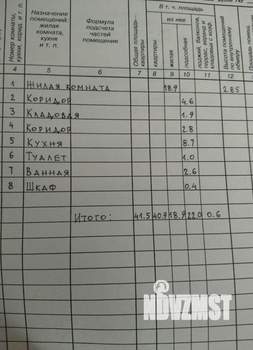 Номер комнаты, кухни, корид. и т. п.
Назначение помещений: жилая комната, кухня и т. п.
Формула подсчета частей помещения
Общая площадь квартиры
В т. ч. площадь
из нее
квартиры
жилая
подсобная
лоджий, балконов, террас, веранд и кладовых с коэф.
Высота помещений по внутреннему обмеру
4 5 6 7 8 9 10 11 12
1 Жилая комната 18.9 2.85
2 Коридор 4.6
3 Кладовая 1.9
4 Коридор 2.8
5 Кухня 8.7
6 Туалет 1.0
7 Ванная 2.6
8 Шкаф 0.4
Итого: 41.5 40.9 18.9 22.0 0.6
NDVZMST